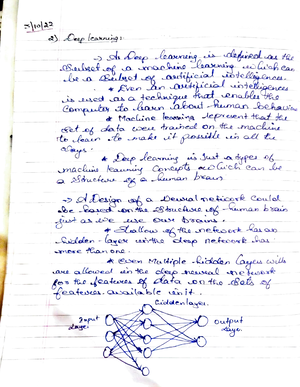 3/10/22
2) Deep learning:
→ A Deep learning is defined as the
Subset of a machine learning which can
be a Subset of artificial intelligences.
* Even an artificial intelligences
is used as a technique that enable the
Computer to learn about human behavior
* Machine learning represent that the
Set of data were trained on the machine
to learn to make it possible in all the
ways.
* Deep learning is Just a types of
machine learning Concepts which can be
a Structure of a human brain.
→ A Design of a Neural network Could
be based on the Structure of human brain
just as we use our brains.
* Shallow of the network has an
hidden-layer in the deep network has
more than one.
* Even Multiple hidden layers will
are allowed in the deep neural network
for the features of data on the Sets of
features available in it.
hidden layer.
Input
layer
output
layer